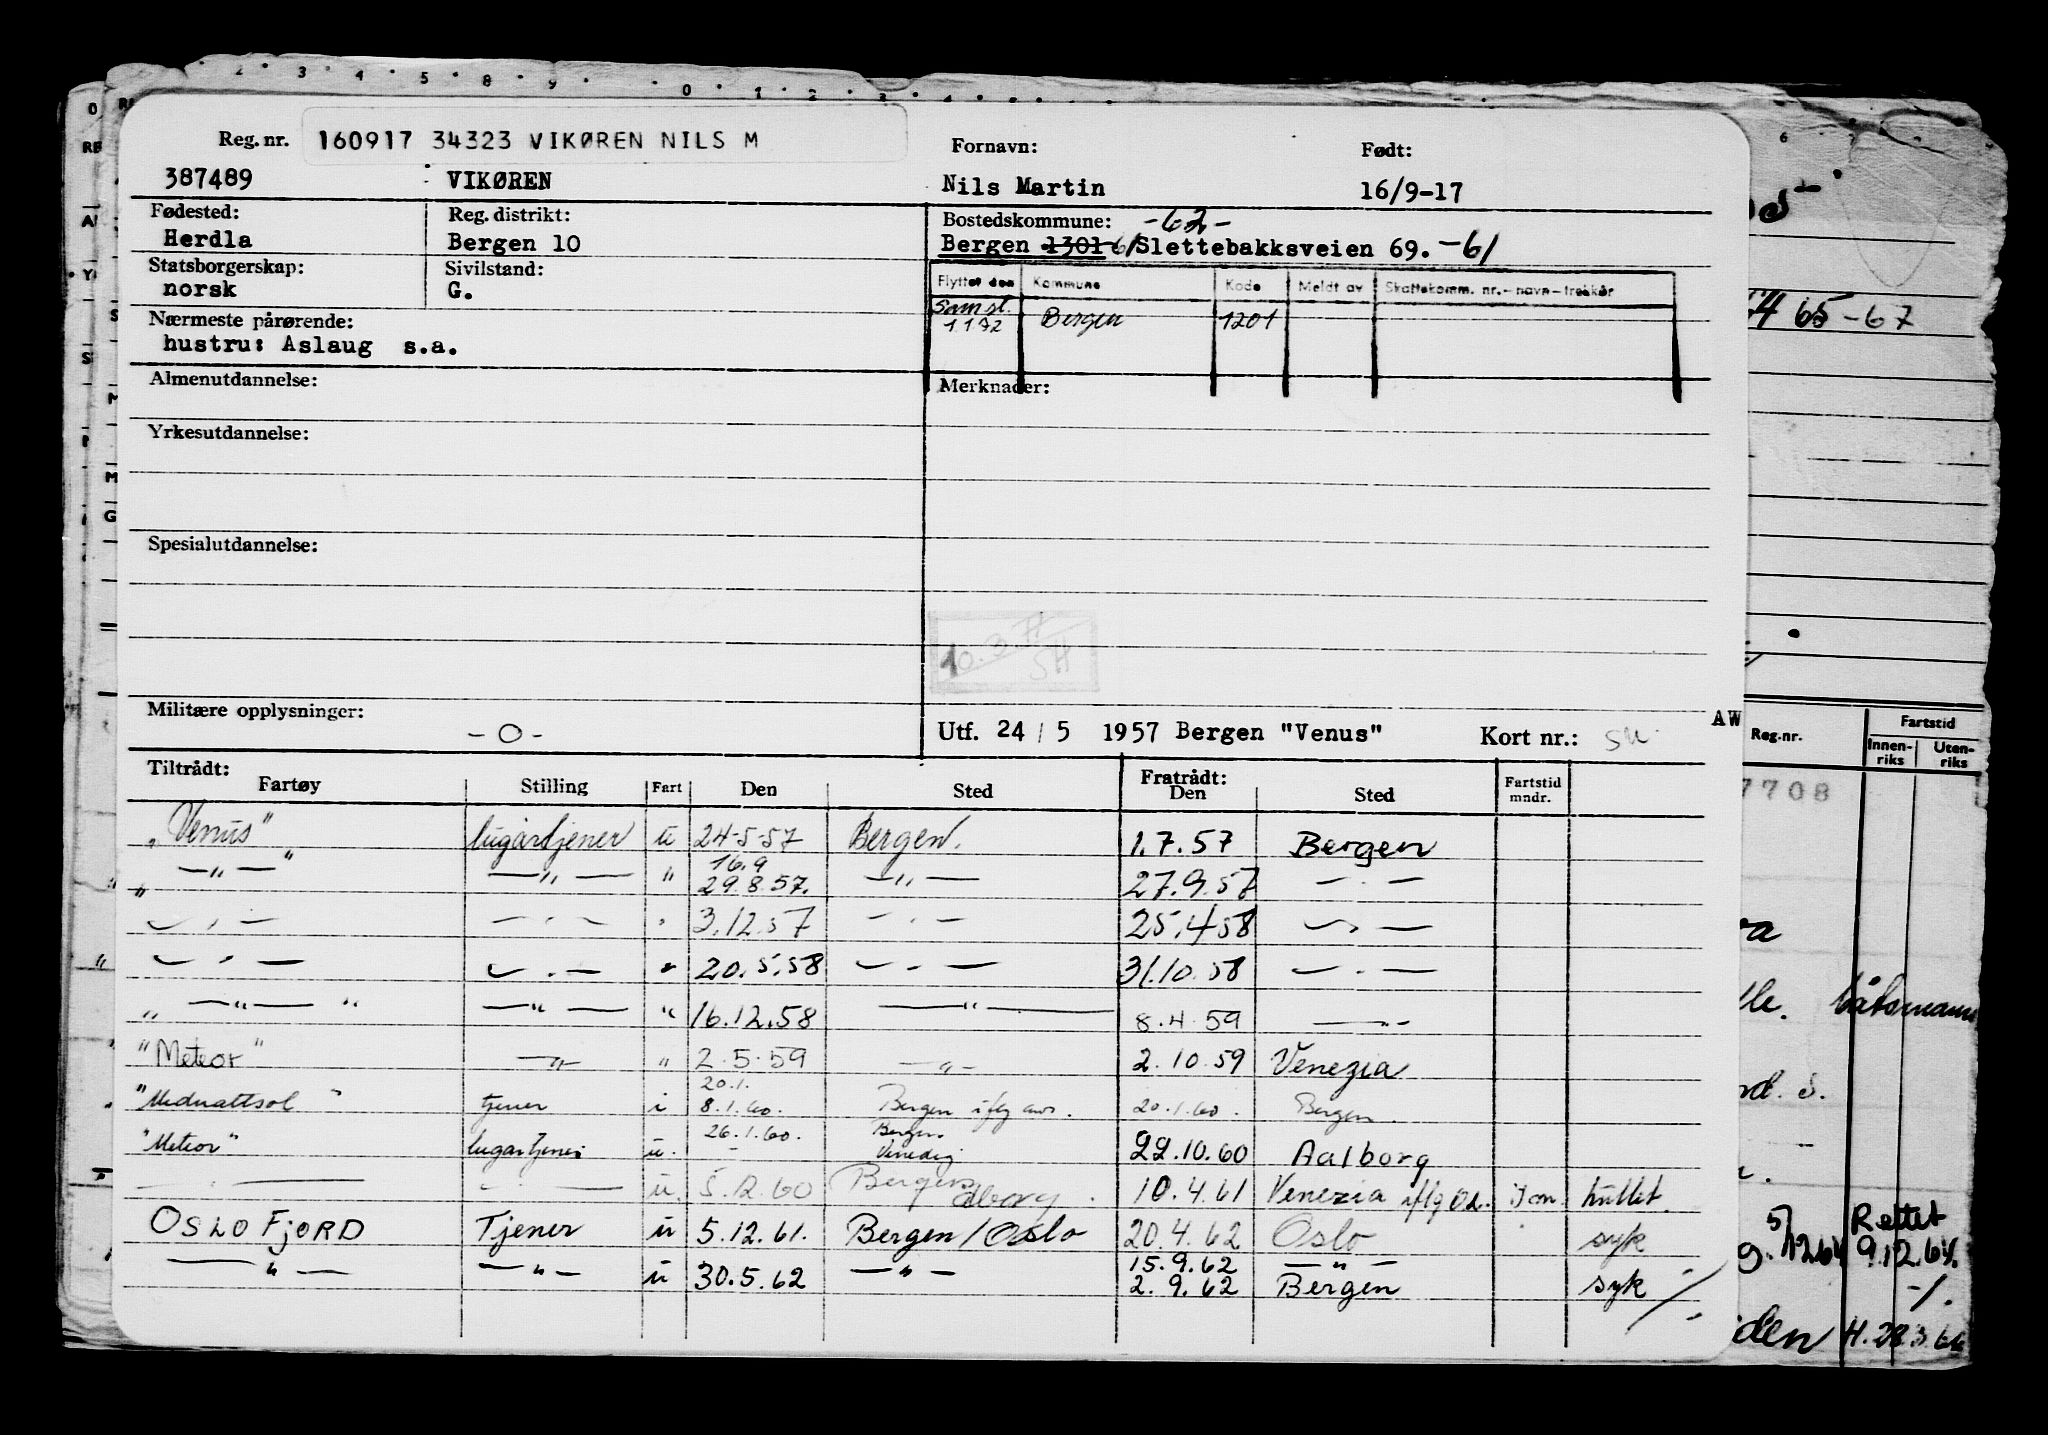 Reg. nr. 160917 34323 VIKØREN NILS M Fornavn: Født:
387489 VIKØREN Nils Martin 16/9-17
Fødested: Reg. distrikt: Bostedskommune: -62-
Herdla Bergen 10 Bergen 1301 61 Slettebakksveien 69. -61
Statsborgerskap: Sivilstand:
norsk G.
Flyttet den Kommune Kode Meldt av Skattekomm. nr.-navn-trekkår
Samst. 1192 Bergen 1201
Nærmeste pårørende:
hustru: Aslaug s.a.
Almenutdannelse: Merknader:
Yrkesutdannelse:
Spesialutdannelse:
10.3 SH
Militære opplysninger: -0- Utf. 24/5 1957 Bergen "Venus" Kort nr.:
AW
Tiltrådt: Fratrådt:
Fartøy Stilling Fart Den Sted Den Sted Fartstid mndr.
"Venus" lugartjener u 24-5-57 Bergen. 1.7.57 Bergen
—"— —"— " 16.9 29.8.57. —"— 27.9.57 —"—
—"— —"— " 3.12.57 —"— 25.4 58 —"—
—"— —"— " 20.5.58 —"— 31.10.58 —"—
" —"— " —"— " 16.12.58 —"— 8.4.59 —"—
"Meteor" —"— " 2.5.59 —"— 2.10.59 Venezia
"Midnattsol" tjener i 20.1. 8.1.60. Bergen iflg 20.1.60. Bergen
"Meteor" lugartjener u. 26.1.60. Bergen Venedig 22.10.60 Aalborg
—"— —"— u. 5.12.60 Bergen 10.4.61 Venezia iflg hullet.
OSLOFJORD Tjener u 5.12.61. Bergen/Oslo 20.4.62 Oslo syk
—"— —"— u 30.5.62 —"— 15.9.62 —"—
2.9.62 Bergen syk
65-67
Reg.nr. Fartstid
Innenriks Utenriks
7708
båtsmann
Rettet
9.12.64.